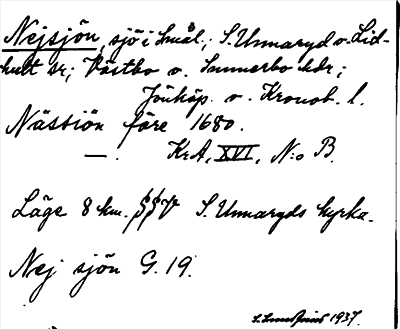 Nejsjön, sjö i Smål.; S. Unnaryd o. Lid-
hult sr; Västbo o. Sunnerbo hdr;
Jönköp. o. Kronob. l.
Nässiön före 1680.
—. KrA, XVI, N:o B.
Läge 8 km. S. Unnaryds kyrka.
Nej sjön G. 19.
1937.